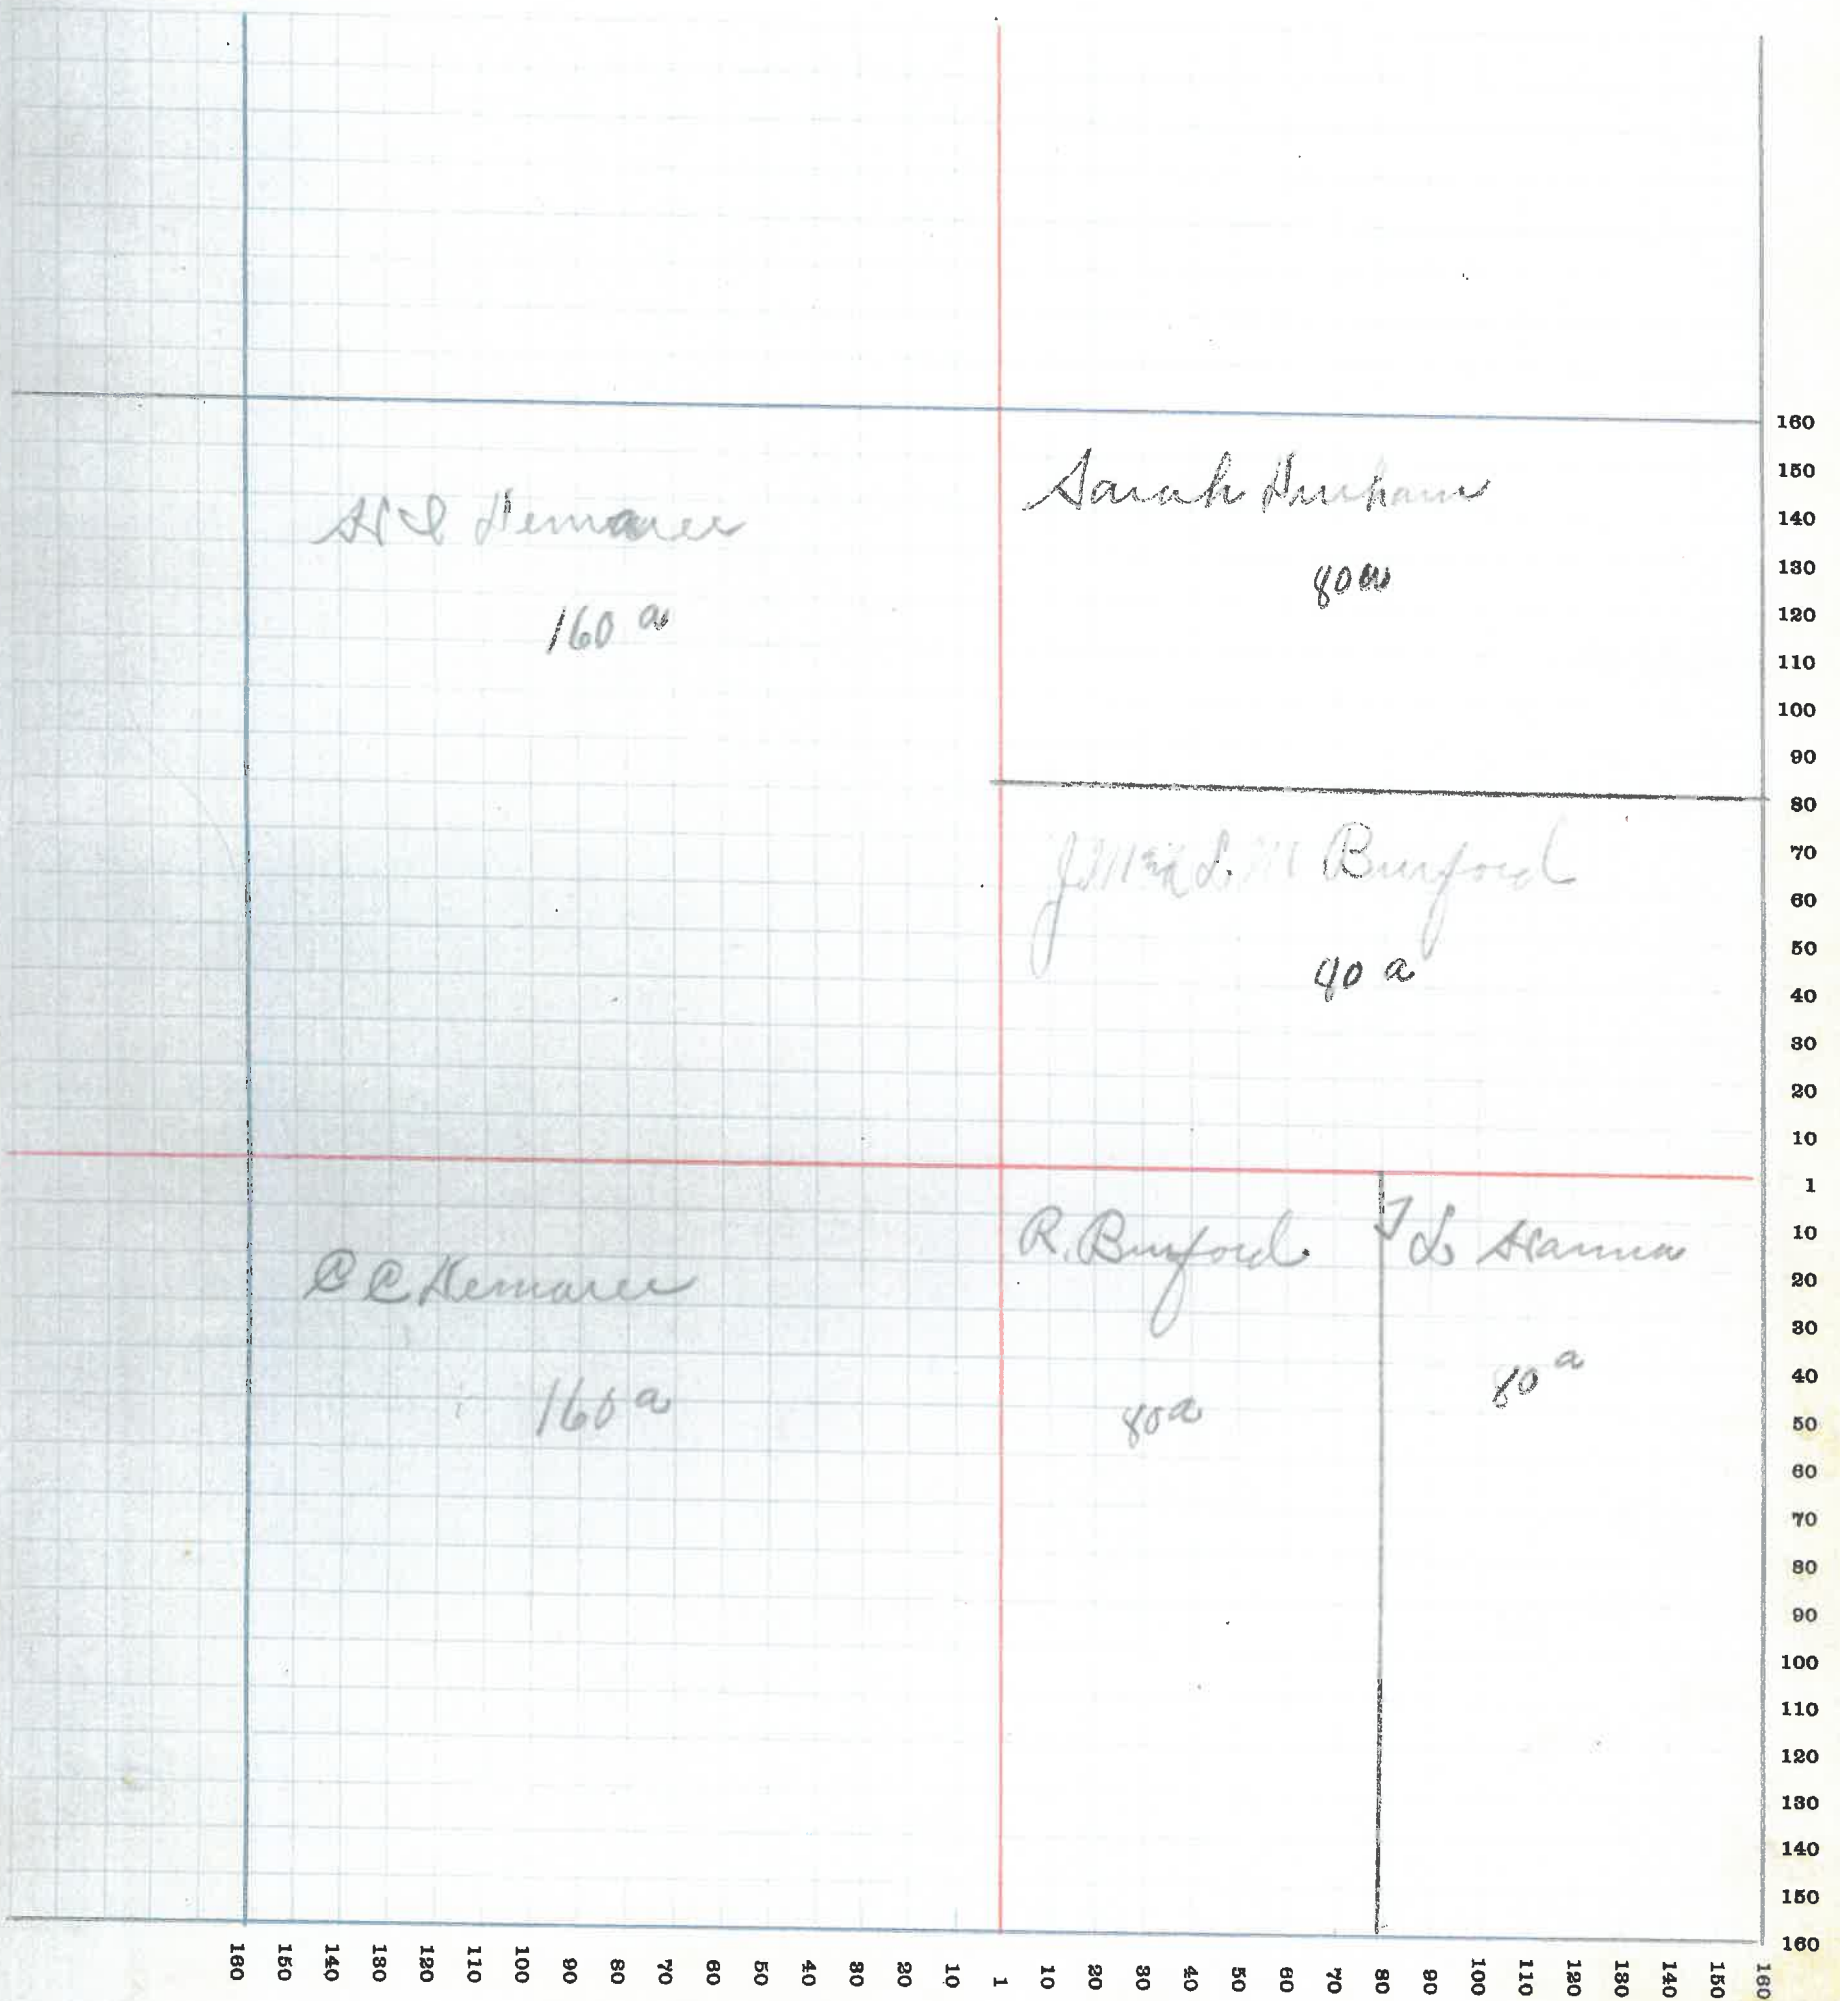 H C Demaree
160 a
Sarah Durham
80 a
Burford
80 a
C C Demaree
160 a
R. Burford
80 a
T L Hanna
80 a
160
150
140
130
120
110
100
90
80
70
60
50
40
30
20
10
1
10
20
30
40
50
60
70
80
90
100
110
120
130
140
150
160
160 150 140 130 120 110 100 90 80 70 60 50 40 30 20 10 1 10 20 30 40 50 60 70 80 90 100 110 120 130 140 150 160